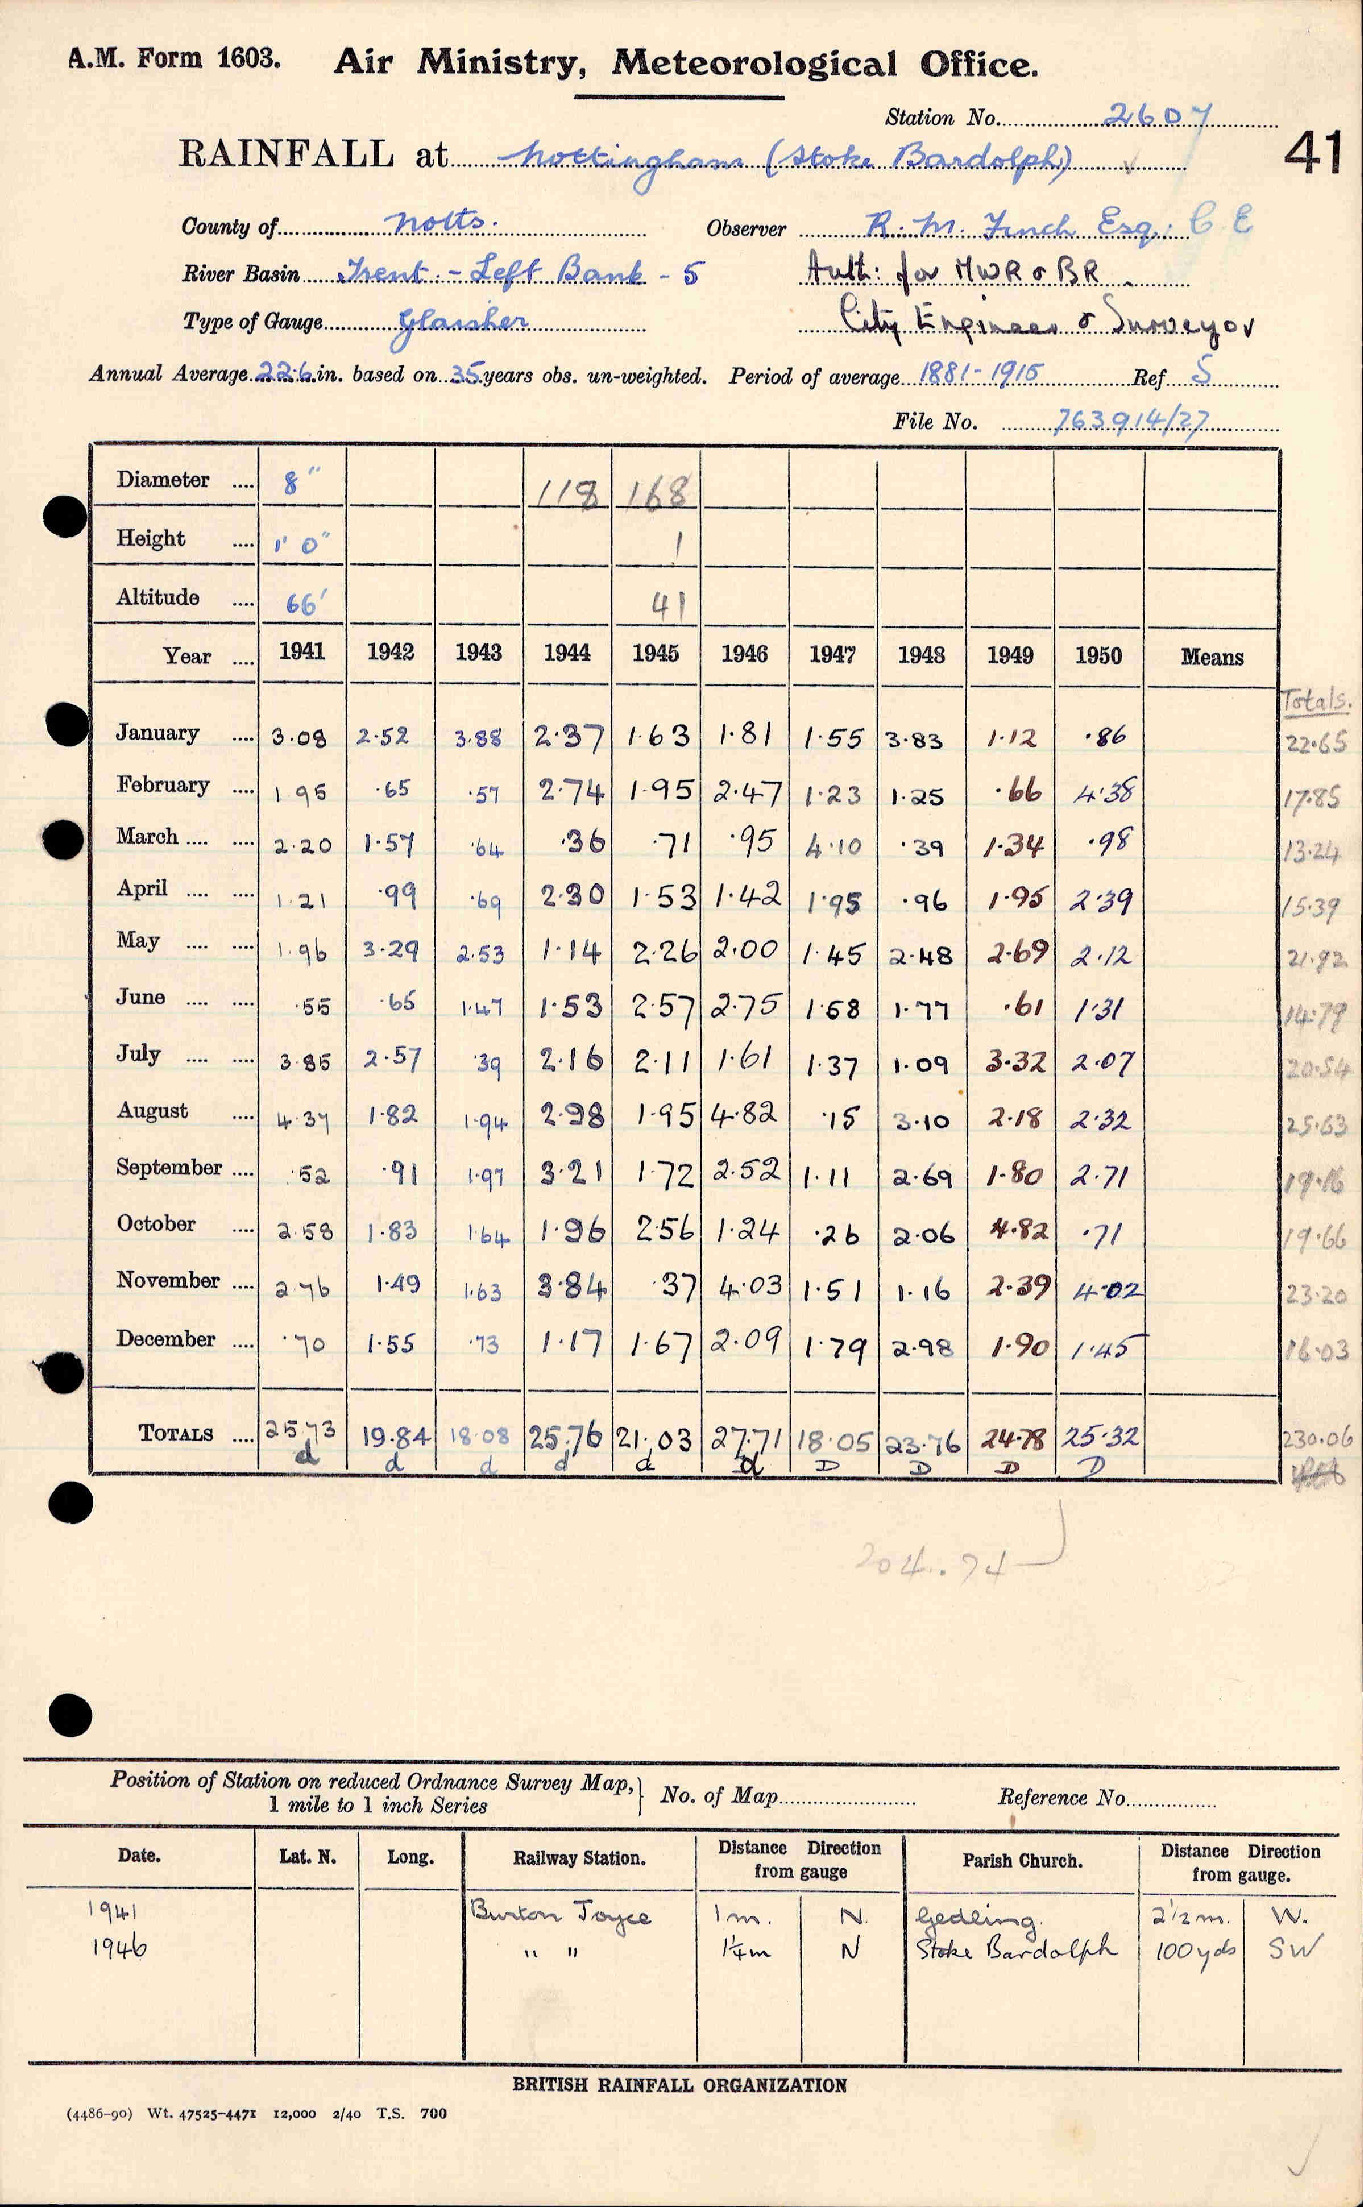 A.M. Form 1603. Air Ministry, Meteorological Office.
Station No. 2607
41
RAINFALL at Nottingham (Stoke Bardolph)
County of Notts. Observer R. M. Finch Esq. C E
River Basin Trent - Left Bank - 5 Auth: for MWR & BR
Type of Gauge Glaisher City Engineer & Surveyor
Annual Average 22.6 in. based on 35 years obs. un-weighted. Period of average 1881-1915 Ref S
File No. 763914/27
Diameter .... 8" 118 168
Height .... 1' 0" 1
Altitude .... 66' 41
Year .... 1941 1942 1943 1944 1945 1946 1947 1948 1949 1950 Means
Totals.
January .... 3.08 2.52 3.88 2.37 1.63 1.81 1.55 3.83 1.12 .86 22.65
February .... 1.95 .65 .57 2.74 1.95 2.47 1.23 1.25 .66 4.38 17.85
March .... .... 2.20 1.57 .64 .36 .71 .95 4.10 .39 1.34 .98 13.24
April .... .... 1.21 .99 .69 2.30 1.53 1.42 1.95 .96 1.95 2.39 15.39
May .... .... 1.96 3.29 2.53 1.14 2.26 2.00 1.45 2.48 2.69 2.12 21.92
June .... .... .55 .65 1.47 1.53 2.57 2.75 1.58 1.77 .61 1.31 14.79
July .... .... 3.85 2.57 .39 2.16 2.11 1.61 1.37 1.09 3.32 2.07 20.54
August .... 4.37 1.82 1.94 2.98 1.95 4.82 .15 3.10 2.18 2.32 25.63
September .... .52 .91 1.97 3.21 1.72 2.52 1.11 2.69 1.80 2.71 19.16
October .... 2.58 1.83 1.64 1.96 2.56 1.24 .26 2.06 4.82 .71 19.66
November .... 2.76 1.49 1.63 3.84 .37 4.03 1.51 1.16 2.39 4.02 23.20
December .... .70 1.55 .73 1.17 1.67 2.09 1.79 2.98 1.90 1.45 16.03
TOTALS .... 25.73 19.84 18.08 25.76 21.03 27.71 18.05 23.76 24.78 25.32 230.06
d d d d d d D D D D
204.74
Position of Station on reduced Ordnance Survey Map, } No. of Map Reference No.
1 mile to 1 inch Series
Date. Lat. N. Long. Railway Station. Distance Direction from gauge Parish Church. Distance Direction from gauge.
1941 Burton Joyce 1 m. N. Gedling. 2½ m. W.
1946 " " 1¼ m N Stoke Bardolph 100 yds SW
BRITISH RAINFALL ORGANIZATION
(4486-90) Wt. 47525-4471 12,000 2/40 T.S. 700